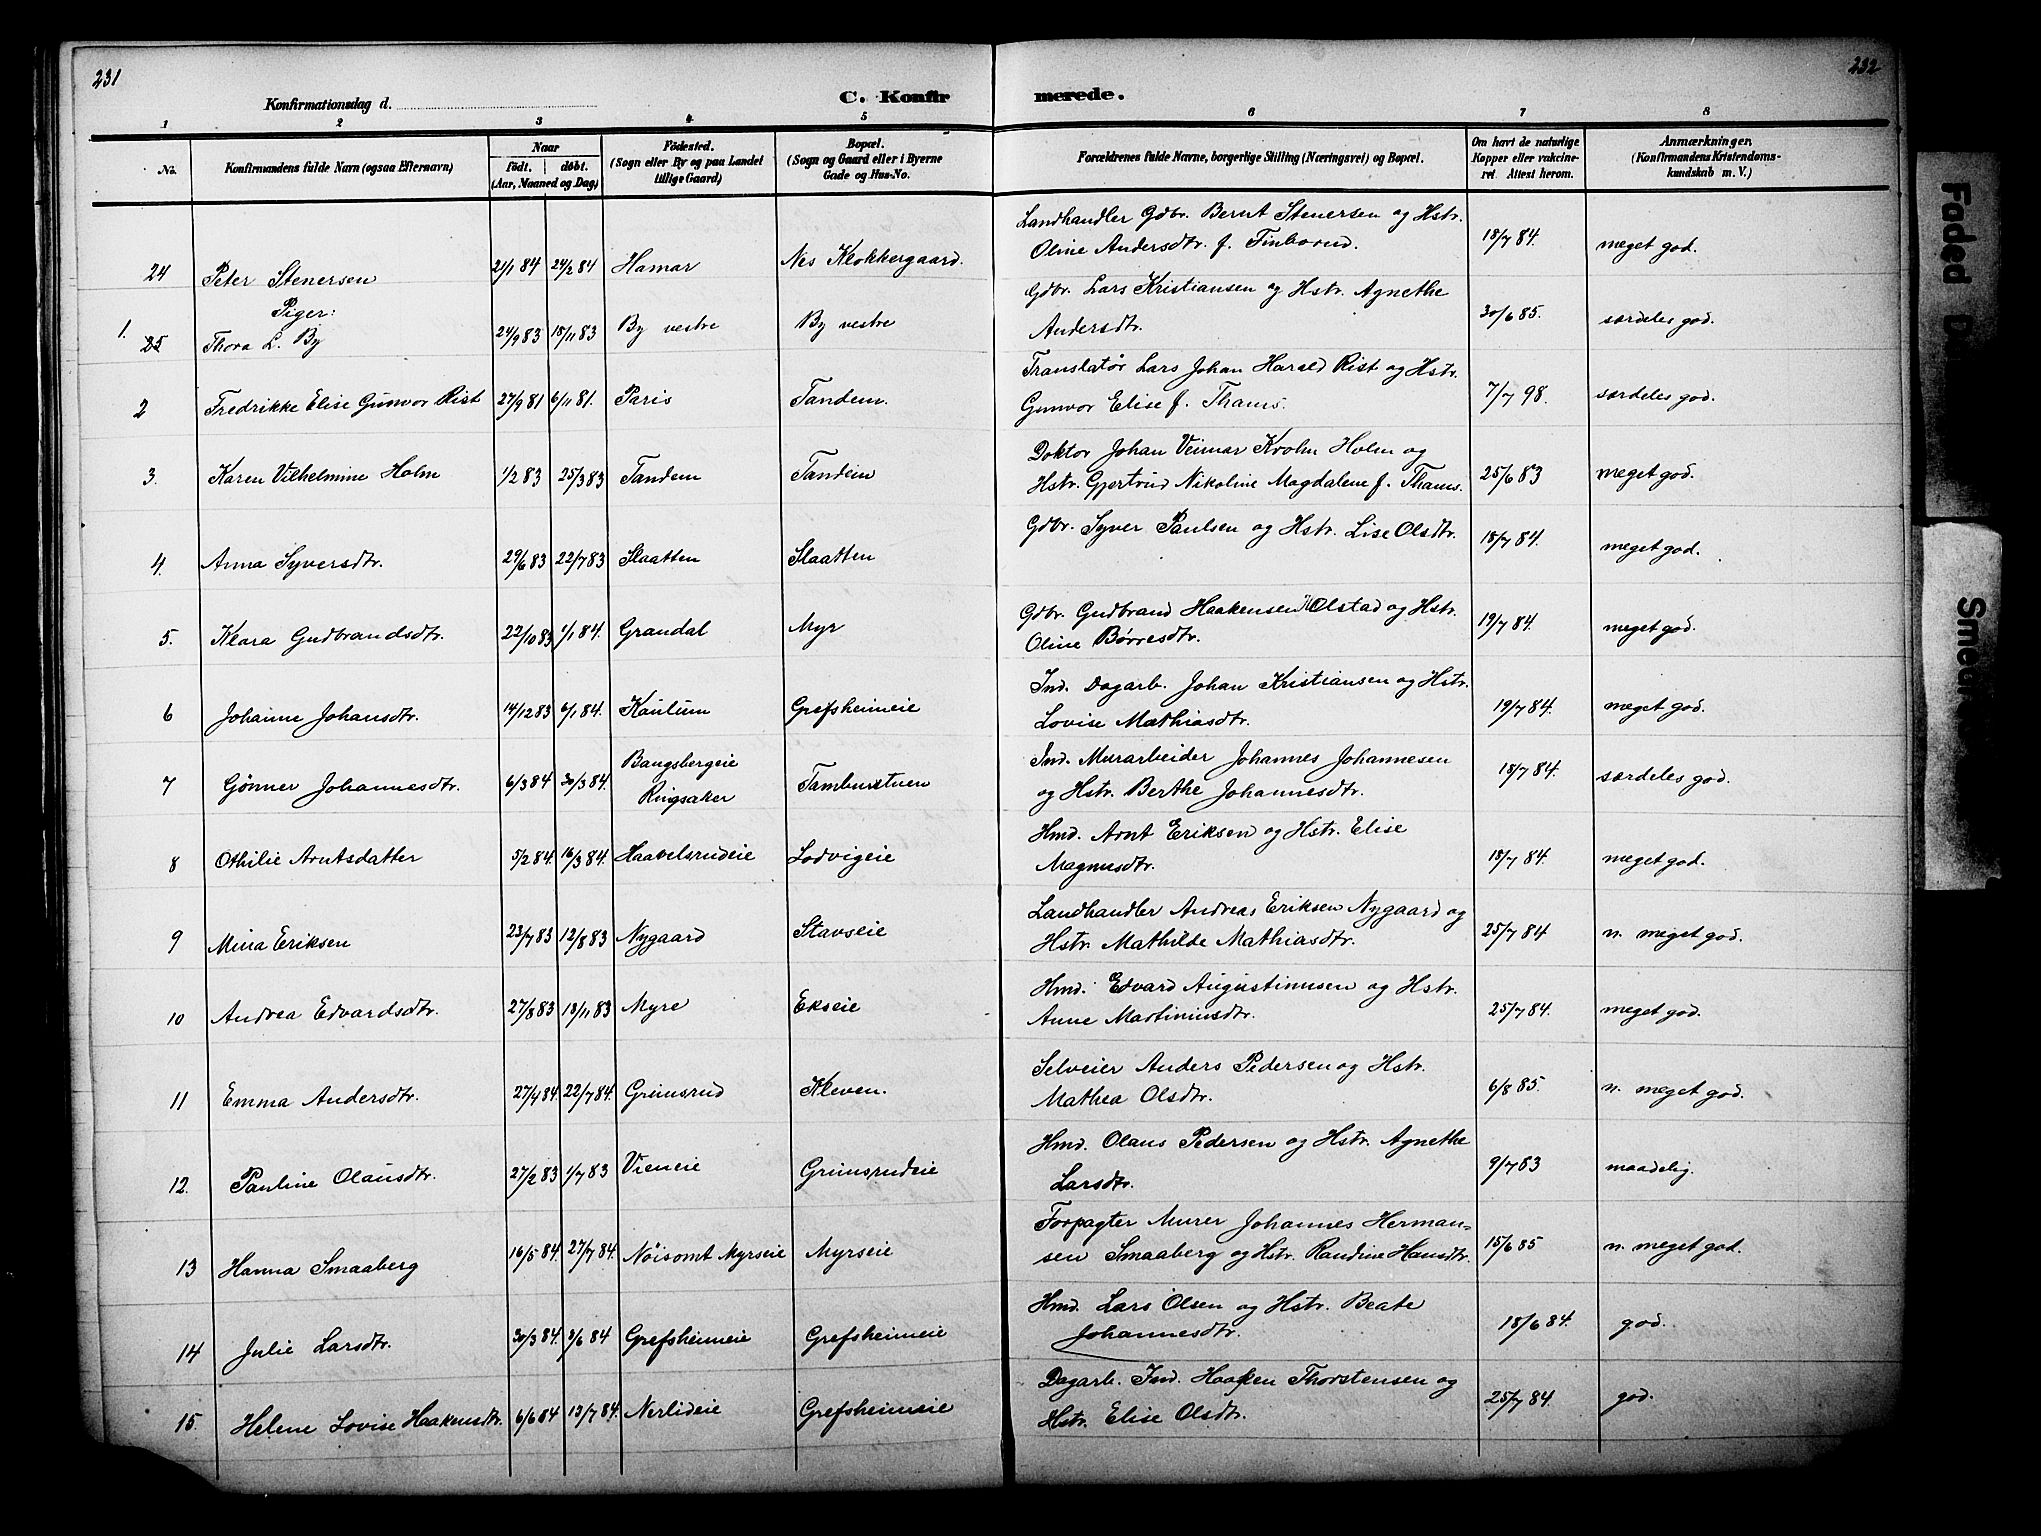 231
232
Konfirmationsdag d.
C. Konfirmerede.
1 2 3 4 5 6 7 8
No. Konfirmandens fulde Navn (ogsaa Efternavn) Naar Födt. döbt. (Aar, Maaned og Dag) Födested. (Sogn eller By og paa Landet tillige Gaard) Bopæl. (Sogn og Gaard eller i Byerne Gade og Hus-No. Forældrenes fulde Navne, borgerlige Stilling (Næringsvei) og Bopæl. Om havt de naturlige Kopper eller vakcineret. Attest herom. Anmærkninger. (Konfirmandens Kristendomskundskab m. V.)
24 Peter Stenersen 21/1 84 24/2 84 Hamar Nes Klokkergaard. Landhandler Gdbr. Bernt Stenersen og Hstr.
Oline Andersdtr. f. 18/7 84. meget god.
Piger:
1. 25 Thora L. By 24/9 83 18/11 83 By vestre By vestre Gdbr. Lars Kristiansen og Hstr. Agnethe
Andersdtr. 30/6 85. særdeles god.
2 Fredrikke Elise Gunvor Rist 27/9 81 6/11 81. Paris Tandem. Translatør Lars Johan Harald Rist og Hstr.
Gunvor Elise f. Thams. 7/7 98. særdeles god.
3. Karen Vilhelmine Holm 1/2 83 25/3 83 Tandem Tandem Doktor Johan Veimar Krohn Holm og
Hstr. Gjertrud Nikoline Magdalene f. Thams. 25/6 83 meget god.
4. Anna Syversdtr. 29/6 83 22/7 83 Slaatten Slaatten Gdbr. Syver Paulsen og Hstr. Lise Olsdtr. 18/7 84. meget god.
5. Klara Gudbrandsdtr. 22/10 83 1/1 84. Grandal Myr Gdbr. Gudbrand Haakensen Olstad og Hstr.
Oline Børresdtr. 19/7 84. meget god.
6 Johanne Johansdtr. 14/12 83 6/1 84. Kaulum Grefsheimeie Ind. Dagarb. Johan Kristiansen og Hstr.
Lovise Mathiasdtr. 19/7 84. meget god.
7 Gønner Johannesdtr. 6/3 84 30/3 84. Bangsbergeie
Ringsaker Tamburstuen Ind. Murarbeider Johannes Johannesen
og Hstr. Berthe Johannesdtr. 18/7 84. særdeles god.
8 Othilie Arntsdatter 5/2 84. 16/3 84. Haavelsrudeie Lodvigeie Hmd. Arnt Eriksen og Hstr. Elise
Magnusdtr. 18/7 84. meget god.
9 Mina Eriksen 23/7 83 12/8 83 Nygaard Stavseie Landhandler Andreas Eriksen Nygaard og
Hstr. Mathilde Mathiasdtr. 25/7 84 n. meget god.
10 Andrea Edvardsdtr. 27/8 83 18/11 83 Myre Ekseie Hmd. Edvard Augustinusen og Hstr.
Anne Martinusdtr. 25/7 84. meget god.
11 Emma Andersdtr. 27/4 84. 22/7 84. Grimsrud Kleven. Selveier Anders Pedersen og Hstr.
Mathea Olsdtr. 6/8 85. n. meget god.
12. Pauline Olausdtr. 27/2 83 1/7 83 Vieneie Grimsrudeie Hmd. Olaus Pedersen og Hstr. Agnethe
Larsdtr. 9/7 83 maadelig.
13 Hanna Smaaberg 16/5 84. 27/7 84. Nöisomt Myrseie Myrseie Forpagter Murer Johannes Herman=
sen Smaaberg og Hstr. Randine Hansdtr. 15/6 85 n. meget god.
14 Julie Larsdtr. 30/3 84. 2/6 84 Grefsheimeie Grefsheimeie Hmd. Lars Olsen og Hstr. Beate
Johannesdtr. 18/6 84. god.
15. Helene Lovise Haakensdtr. 6/6 84 13/7 84. Nerlideie Grefsheimeie Dagarb. Ind. Haaken Thorstensen og
Hstr. Elise Olsdtr. 25/7 84. god.
Faded